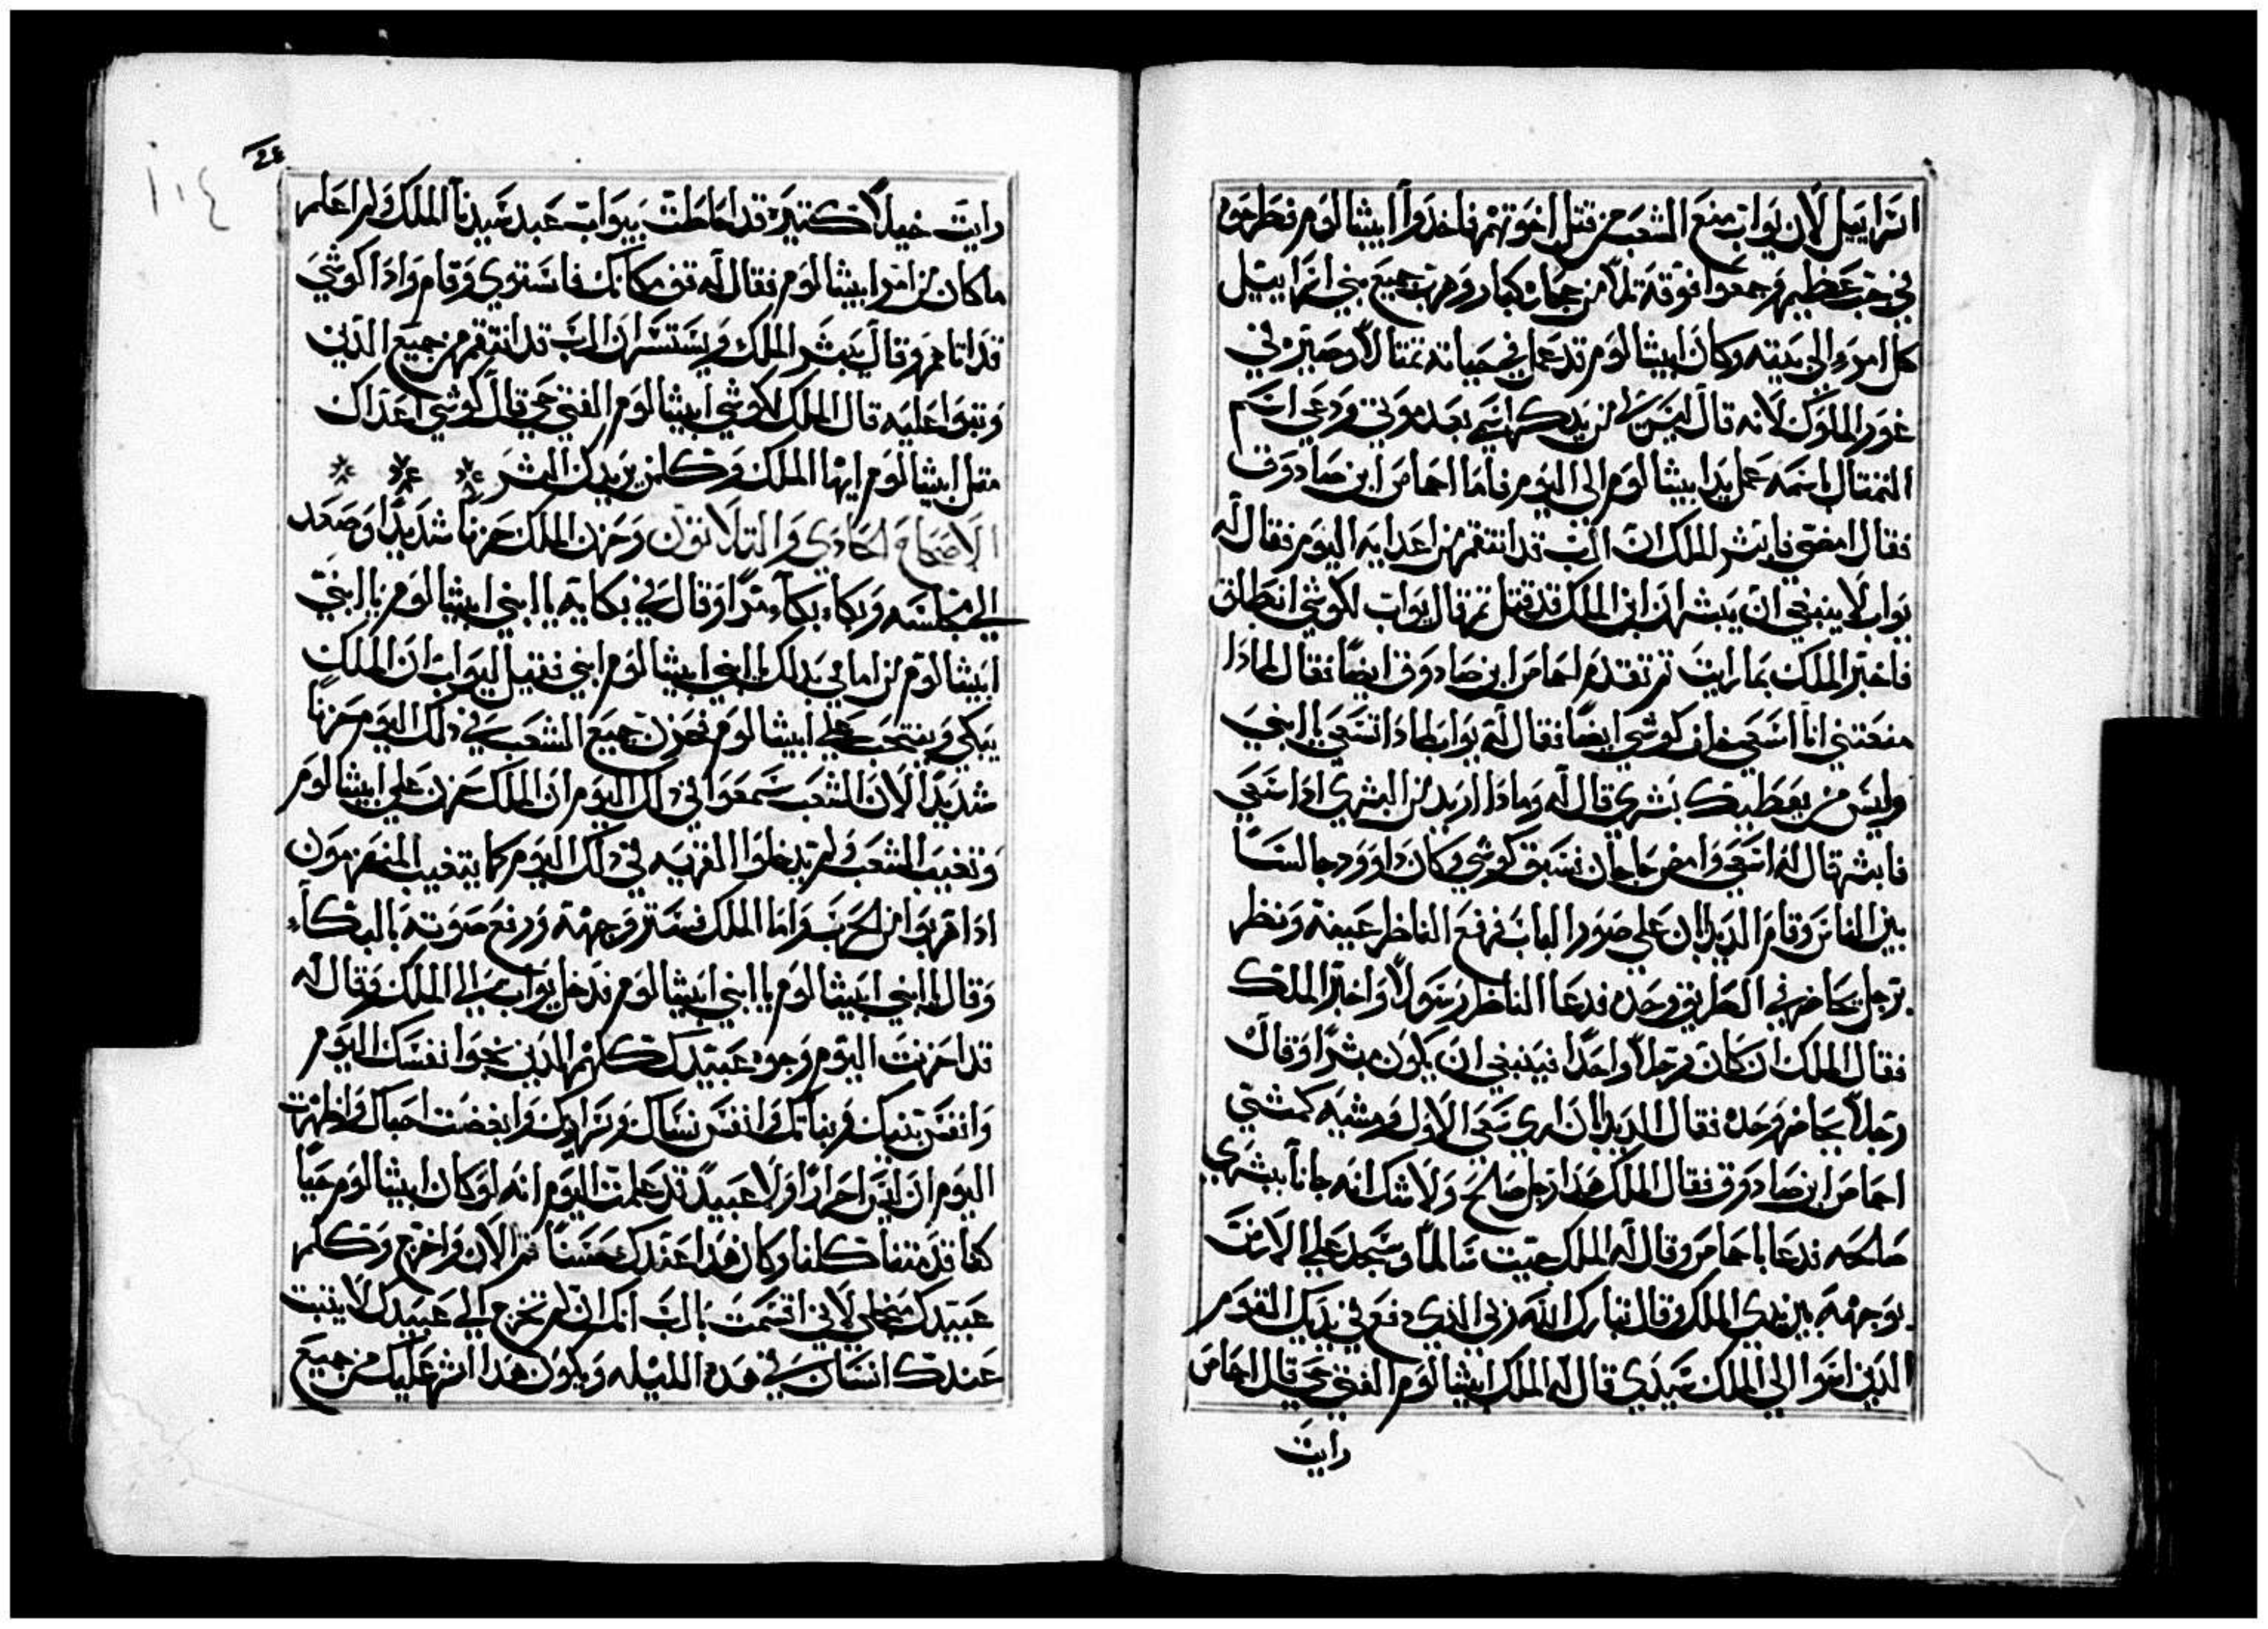 اسراييل لان يواب منع الشعب من قتل اخوتهم فاخدوا ابيشالوم فطرحوه
في جب عظيم وجمعوا فوقه تلا من حجاره كبار وهرب جميع بني اسراييل
كل امرء الي بيته وكان ابيشالوم قد عمل في حياته تمتالا وصيره في
غور الملوك لانه قال ليس لي ابن يدكر اسمي بعد موتي ودعي اسم
التمتال باسمه عمل يد ابيشالوم الي اليوم فاما احماص ابن صادوق
فقال امضي فابشر الملك ان الرب قد انتقم من اعدايه اليوم فقال له
يواب لا ينبغي ان يبشر لان ابن الملك قد قتل تم قال يواب لكوشي انطلق
فاخبر الملك بما رايت تم تقدم احماص ابن صادوق ايضا فقال لمادا
منعتني انا اسعي خلف كوشي ايضا فقال له يواب لمادا تسعي يا ابني
وليس من يعطيك بشري قال له ومادا اريد من البشري ادا سعي
فابشر قال له اسعي وامض حاجا ان تسبق كوشي وكان داوود جالسا
بين الناس وقام الديدبان علي صور الباب فرفع الناظر عينه ونظر
برجل يحاضر في الطريق وحده فدعا الناظر رسولا واخبر الملك
فقال الملك ان كان رجلا واحدا فينبغي ان يكون مبشرا وقال
رجلا يحاضر وحده فقال الديدبان اري سعي الاول ومشيه كمشي
احماص ابن صادوق فقال الملك هدا رجل صالح ولا شك انه جانا ببشري
صالحه فدعا باحماص وقال له الملك جيت سالما وسجد علي الارض
بوجهه بين يدي الملك وقال تبارك الله ربي الدي دفع في يديك القوم
الدين اسوا الي الملك سيدي قال له الملك ابيشالوم الفتي حي قال احماص
رايت
٢٤
١٠٤
رايت خيلا كتيره قد احاطت بيواب عبد سيدنا الملك ولم اعلم
ما كان من امر ابيشالوم فقال له قف مكانك فاستوي وقام وادا كوشي
قد اتاهم وقال يبشر الملك ويستسر ان الرب قد انتقم من جميع الدين
وتبوا عليه قال الملك لكوشي ابيشالوم الفتي حي قال كوشي اعداك
متل ابيشالوم ايها الملك وكلمن يريدك الشر
الاصحاح الحادي والتلاتون وحزن الملك حزنا شديدا وصعد
الي مجلسه وبكاء بكاء مرا وقال في بكايه يا ابني ابيشالوم يا ابني
ابيشالوم من اماتني بدلك يا ابني ابيشالوم ابني فقيل ليواب ان الملك
يبكي وينتحب علي ابيشالوم فحزن جميع الشعب في دلك اليوم حزنا
شديدا لان الشعب سمعوا في دلك اليوم ان الملك حزن علي ابيشالوم
وتغيب الشعب ولم يدخلوا القريه في دلك اليوم كما يتغيب المنهزمون
ادا هربوا من الحرب واما الملك فستر وجهه ورفع صوته بالبكاء
وقال يا ابني ابيشالوم يا ابني ابيشالوم فدخل يواب الي الملك وقال له
قد احزنت اليوم وجوه عبيدك كلهم الدين نجوا نفسك اليوم
وانفس بنيك وبناتك وانفس نساك وسراريك وابغضت احباك واظهرت
اليوم ان ليس احرارا ولا عبيد قد علمت اليوم انه لو كان ابيشالوم حيا
كنا قد متنا كلنا وكان هدا عندك حسنا قم الان واخرج وتكلم
عبيدك لاني اقسمت بالرب انك ان لم تخرج الي عبيدك لا يتبت
عندك انسان في هده الليله ويكون هدا اشر عليك من جميع